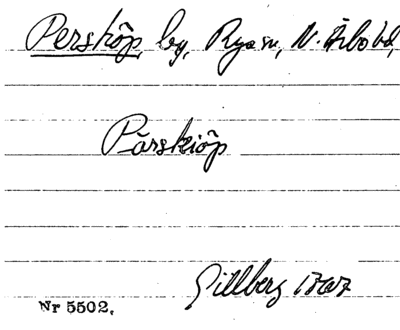 Persköp, by, Rya sn, N. Åsbo hd,
Pärskiöp
Gillberg 1767
Nr 5502.